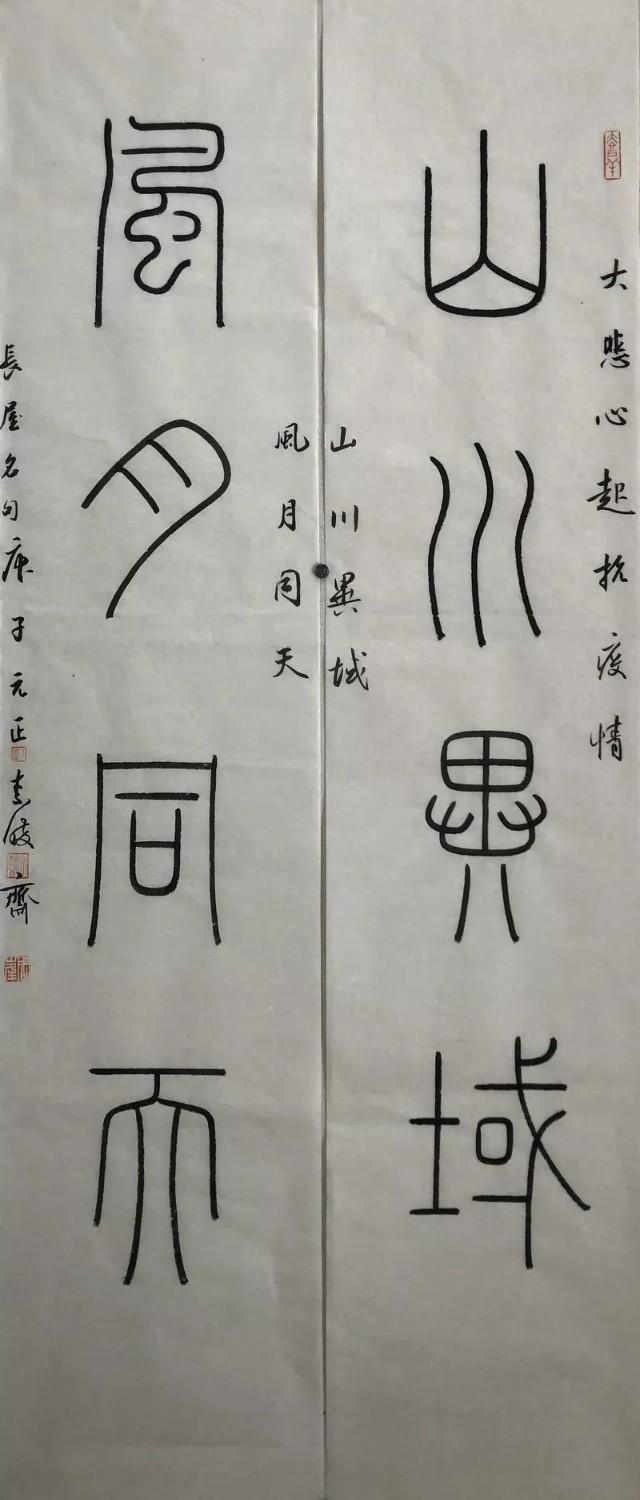 大悲心起抗疫情
山川異域
山川異域
風月同天
風月同天
長屋名句庚子元正
齋